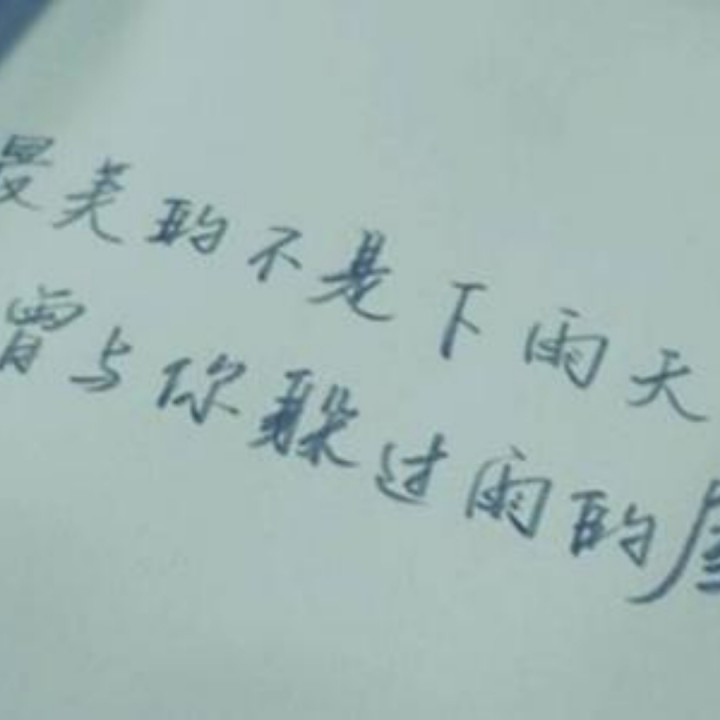 最美的不是下雨天
曾与你躲过雨的屋